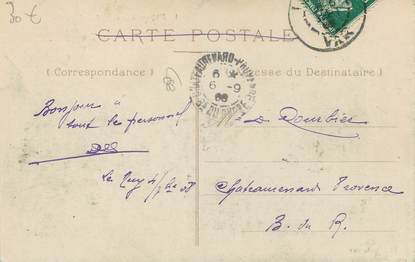 30 €
VAR
CARTE POSTALE
(Correspondance)
Adresse du Destinataire)
CHATEAURENARD-PROVENCE
6
6-9
08
BCHES DU RHONE
Bonjour à
tout le personnel
Le Muy
Dombier
Chateaurenard Provence
B. du R.